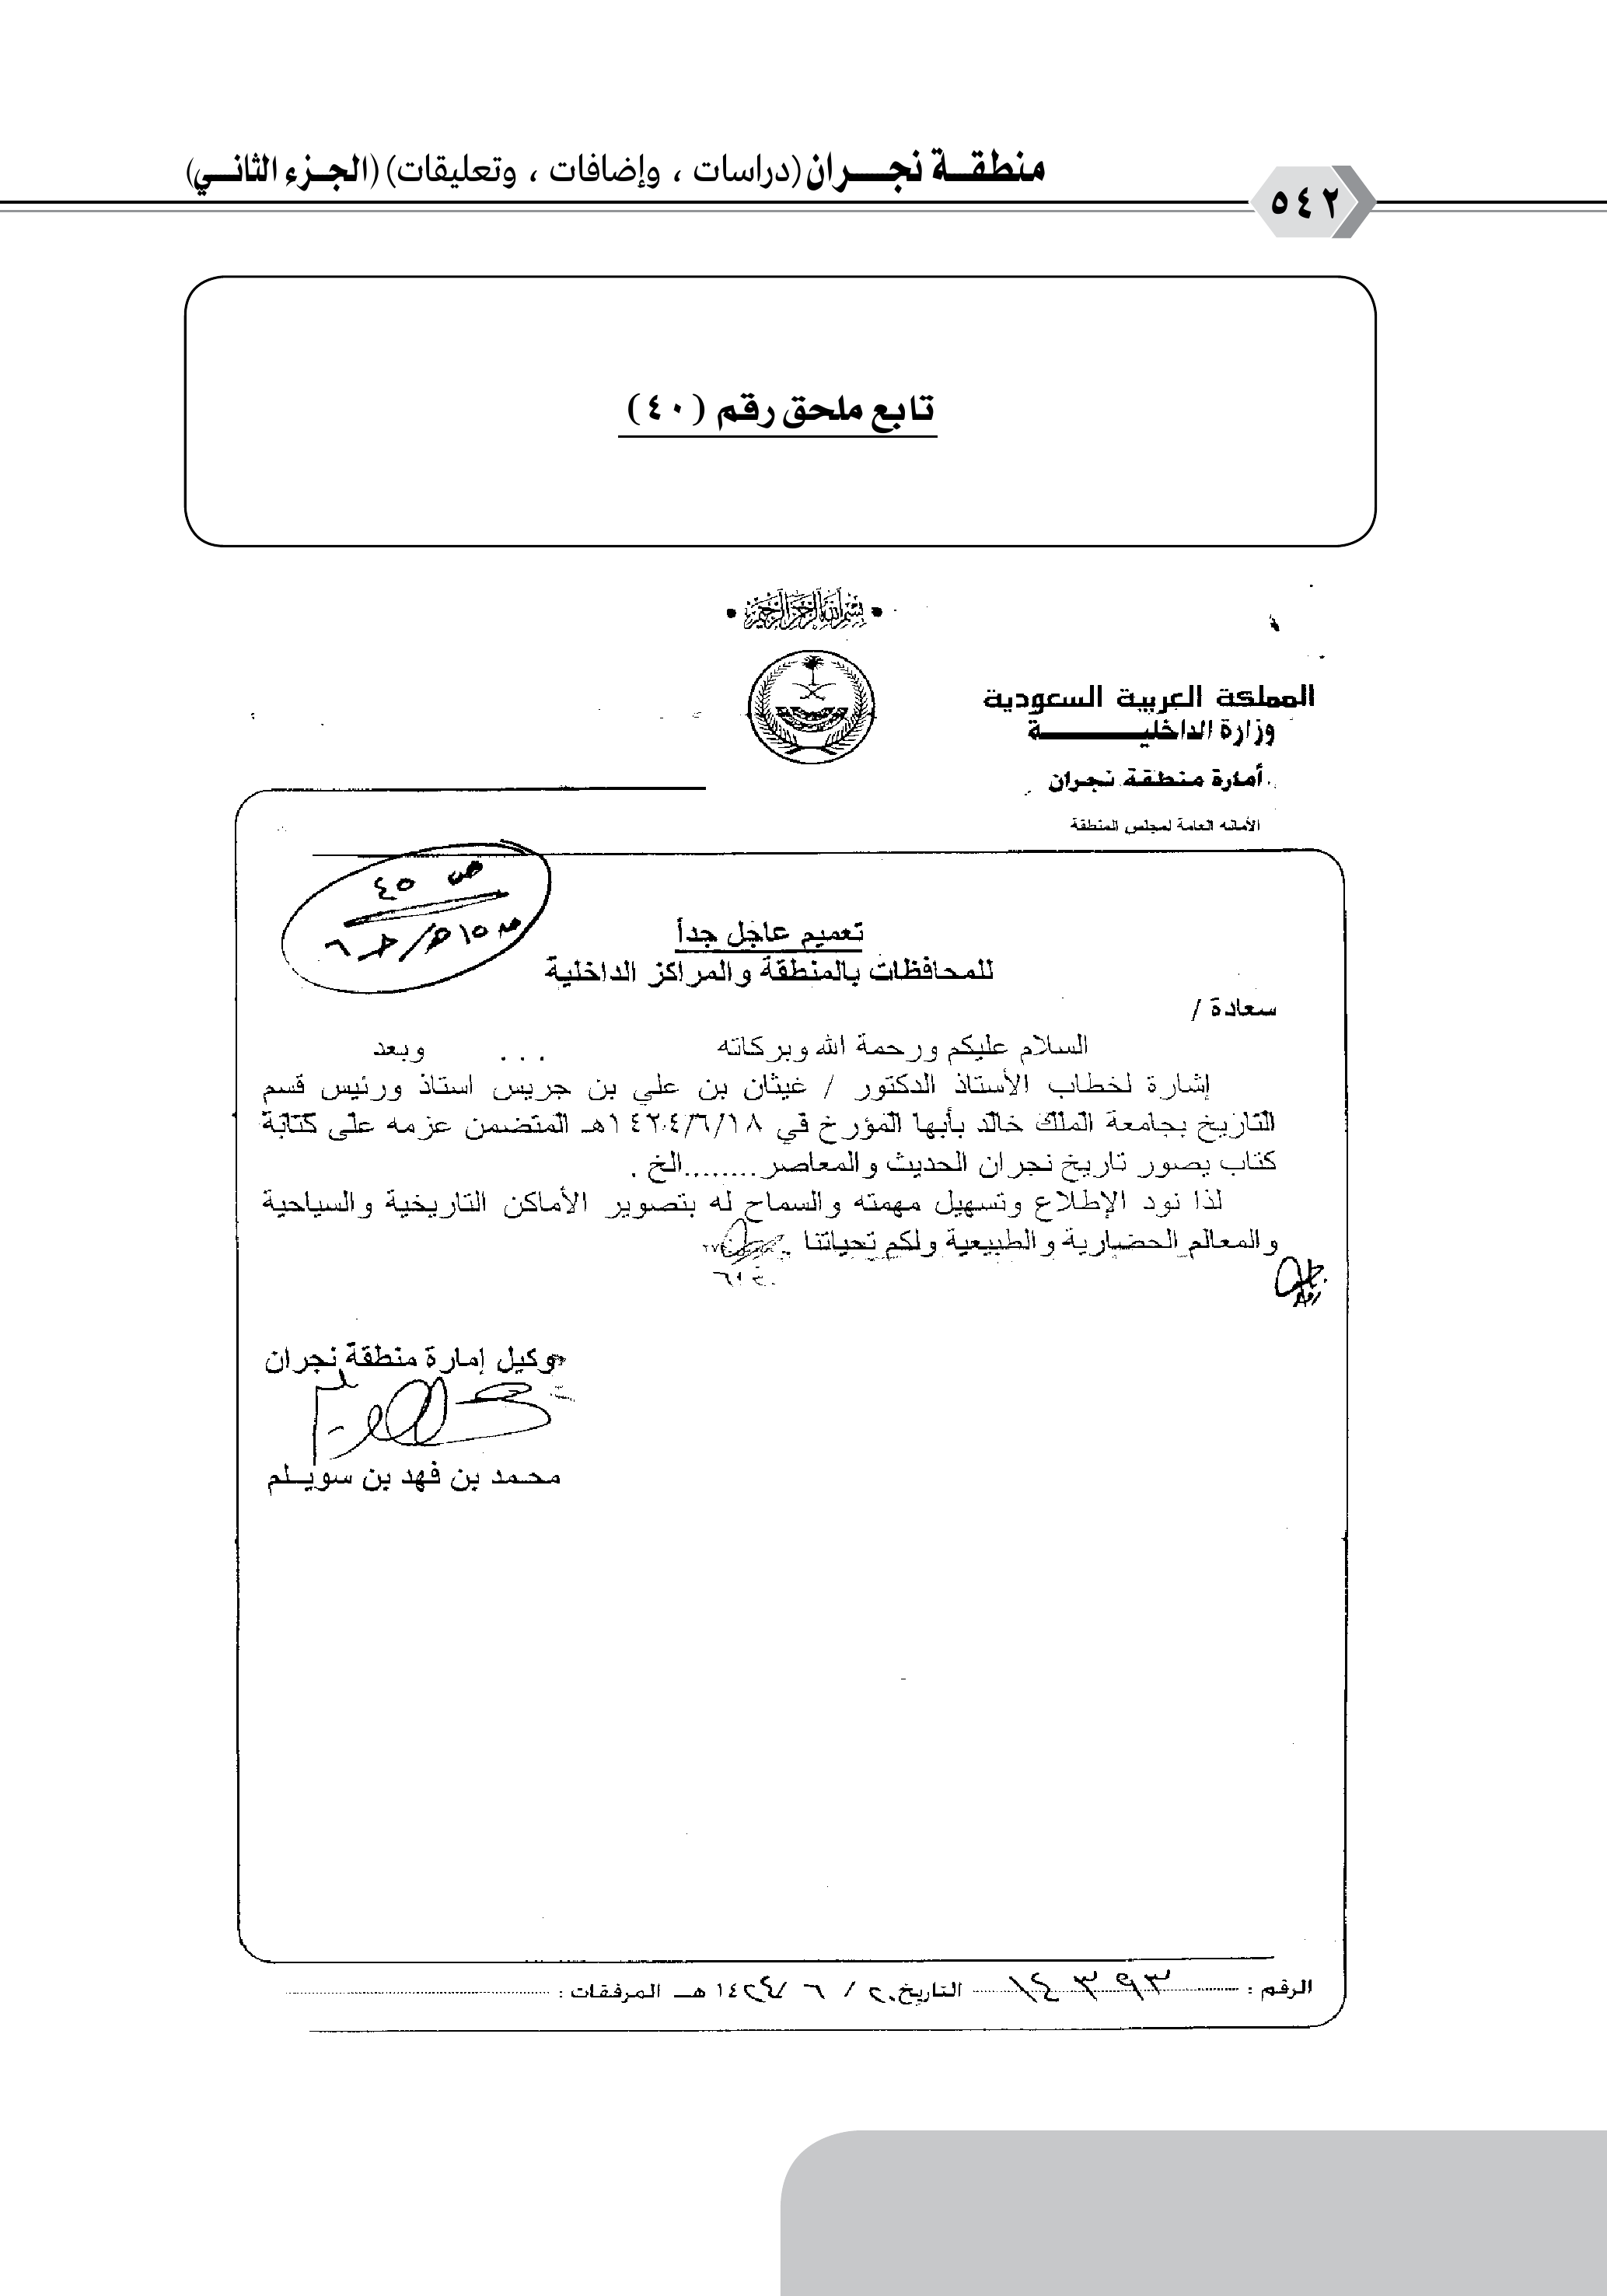 منطقـة نجـــران (دراسات ، وإضافات ، وتعليقات) (الجـزء الثانـي)
٥٤٢
تابع ملحق رقم (٤٠)
بسم الله الرحمن الرحيم
المملكة العربية السعودية
وزارة الداخليــــــة
أمارة منطقة نجران
الأمانه العامة لمجلس المنطقة
ص ٤٥
تعميم عاجل جداً
للمحافظات بالمنطقة والمراكز الداخلية
سعادة /
السلام عليكم ورحمة الله وبركاته . . . وبعد
إشارة لخطاب الأستاذ الدكتور / غيثان بن علي بن جريس استاذ ورئيس قسم
التاريخ بجامعة الملك خالد بأبها المؤرخ في ١٤٢٤/٦/١٨هـ المتضمن عزمه على كتابة
كتاب يصور تاريخ نجران الحديث والمعاصر........الخ .
لذا نود الإطلاع وتسهيل مهمته والسماح له بتصوير الأماكن التاريخية والسياحية
والمعالم الحضارية والطبيعية ولكم تحياتنا
وكيل إمارة منطقة نجران
محمد بن فهد بن سويـلم
الرقم : التاريخ ٢٠ / ٦ / ١٤٢٤ هـ المرفقات :